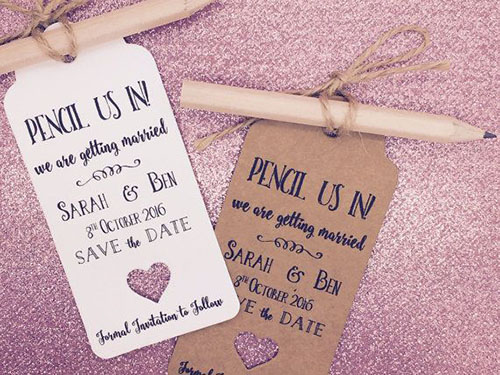 PENCIL US IN!
we are getting married
SARAH & BEN
8th OCTOBER 2016
SAVE the DATE
Formal Invitation to Follow
PENCIL US IN!
we are getting married
SARAH & BEN
8th OCTOBER 2016
SAVE the DATE